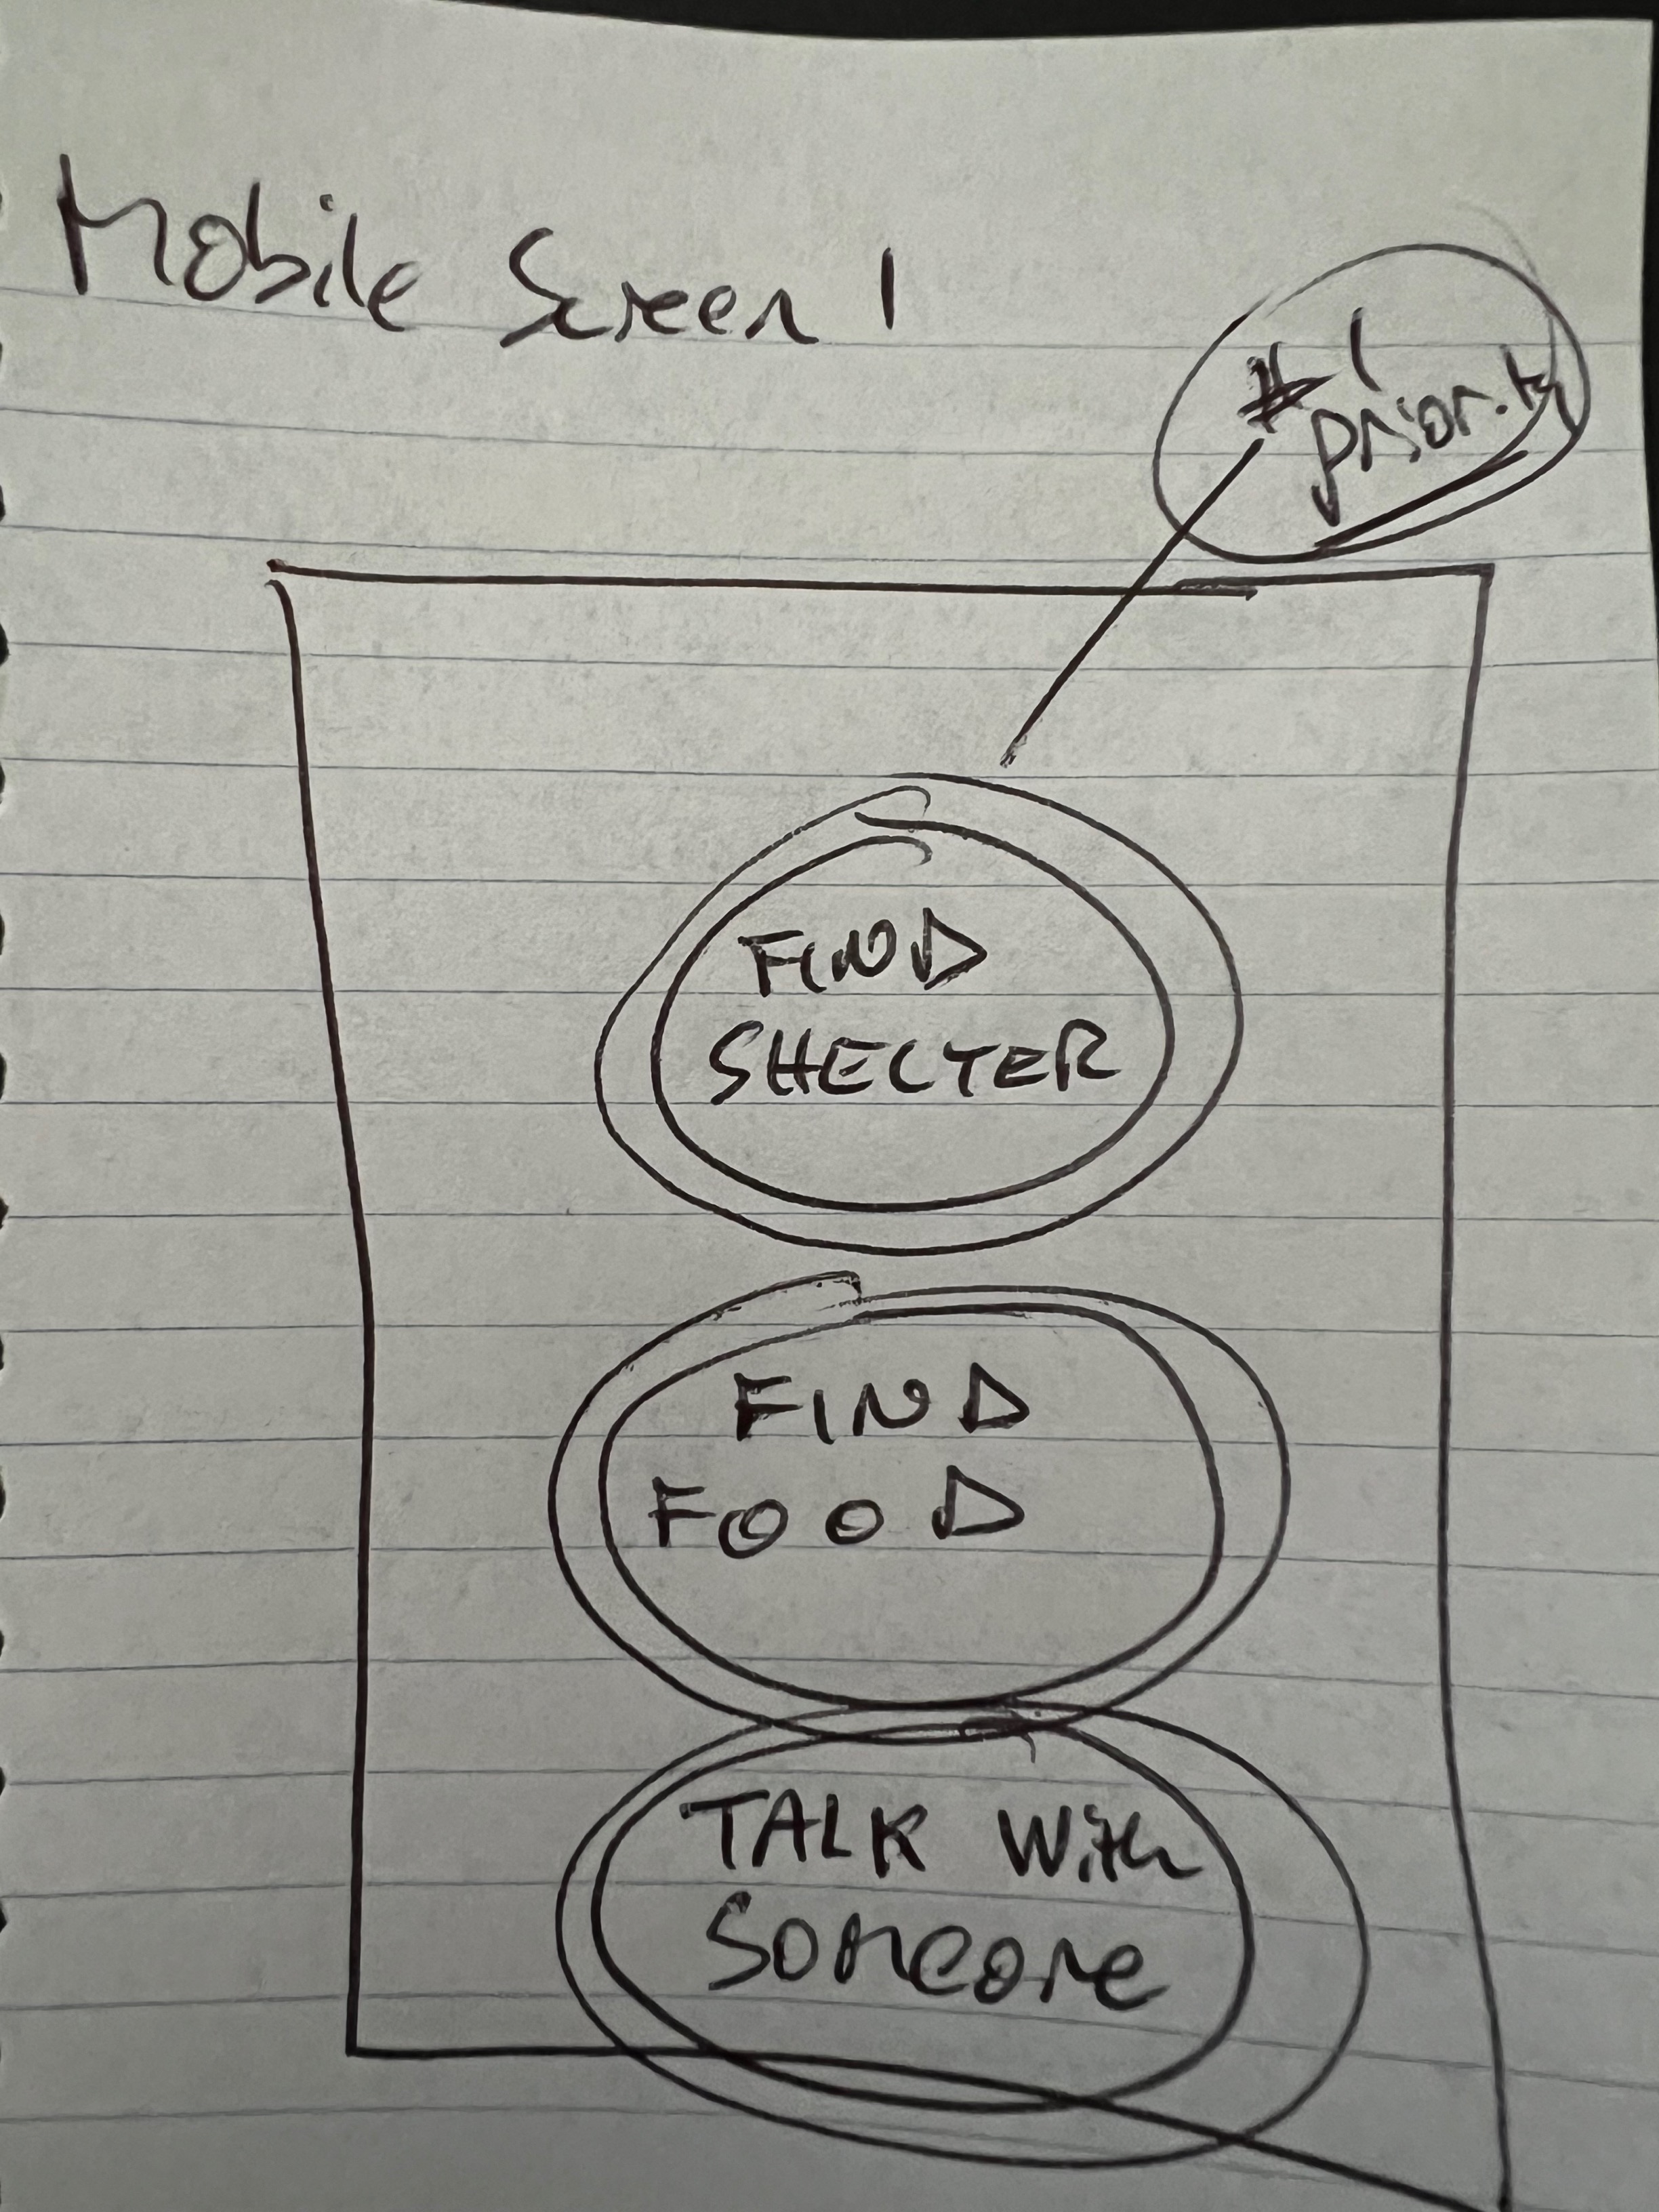 Mobile Screen 1
#1
priority
FIND
SHELTER
FIND
FOOD
TALK With
Someone